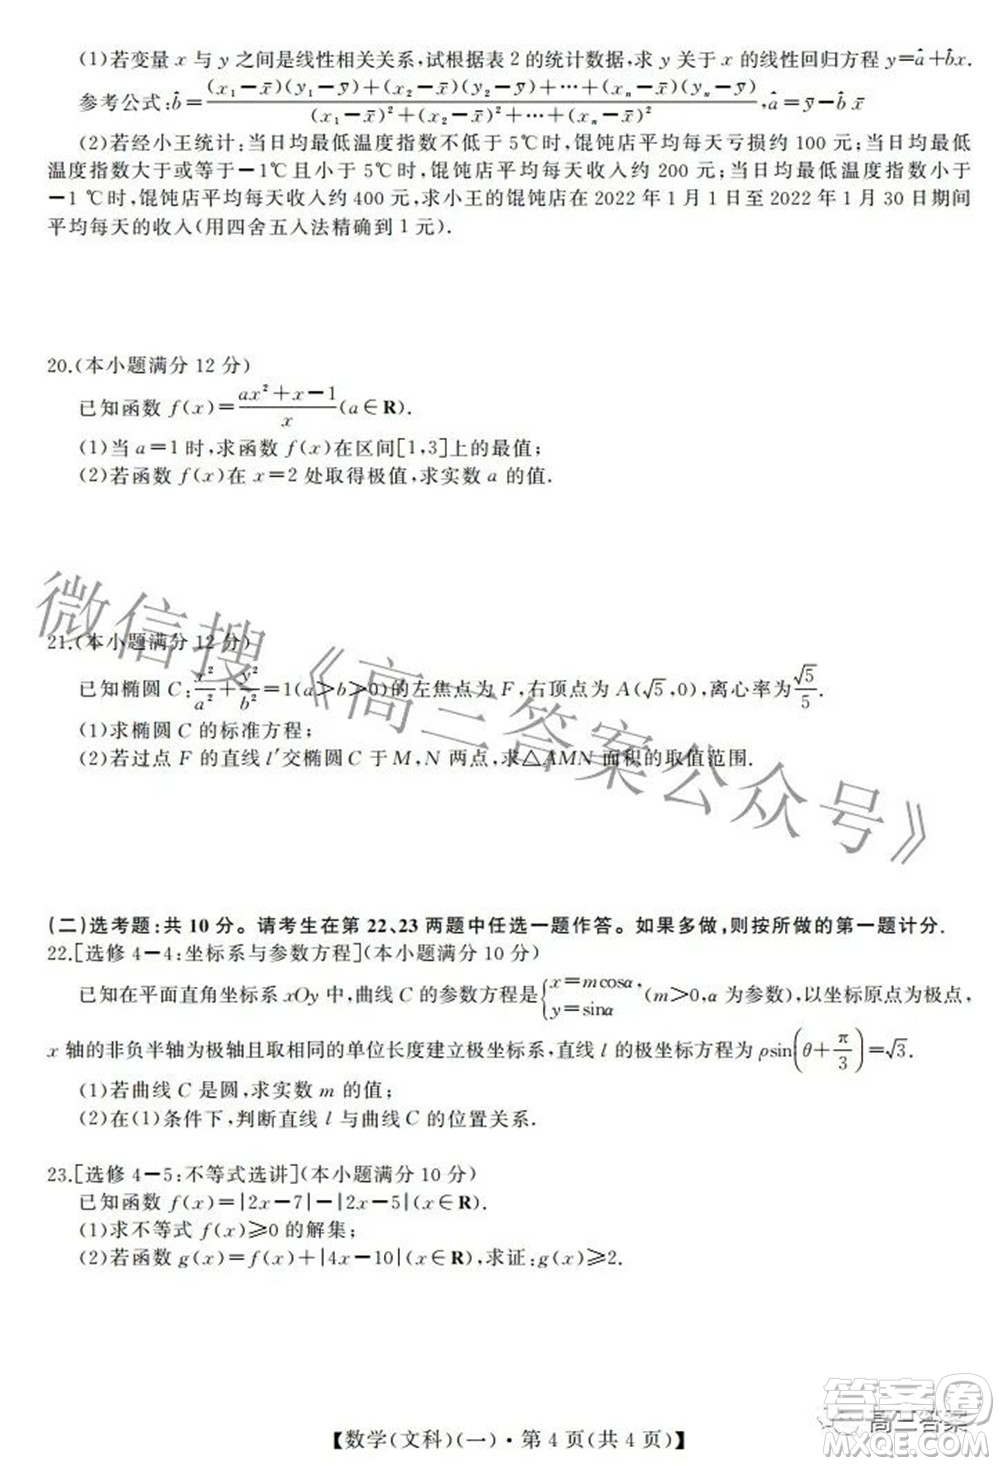 (1)若变量 x 与 y 之间是线性相关关系,试根据表 2 的统计数据,求 y 关于 x 的线性回归方程 y=â+b̂x.
参考公式:b̂=\frac{(x₁-x̄)(y₁-ȳ)+(x₂-x̄)(y₂-ȳ)+…+(xₙ-x̄)(yₙ-ȳ)}{(x₁-x̄)²+(x₂-x̄)²+…+(xₙ-x̄)²},â=ȳ-b̂ x̄
(2)若经小王统计:当日均最低温度指数不低于 5℃时,馄饨店平均每天亏损约 100 元;当日均最低
温度指数大于或等于-1℃且小于 5℃时,馄饨店平均每天收入约 200 元;当日均最低温度指数小于
-1 ℃时,馄饨店平均每天收入约 400 元,求小王的馄饨店在 2022 年 1 月 1 日至 2022 年 1 月 30 日期间
平均每天的收入(用四舍五入法精确到 1 元).
20.(本小题满分 12 分)
已知函数 f(x)=\frac{ax²+x-1}{x}(a∈R).
(1)当 a=1 时,求函数 f(x)在区间[1,3]上的最值;
(2)若函数 f(x)在 x=2 处取得极值,求实数 a 的值.
21.(本小题满分 12 分)
已知椭圆 C:\frac{x²}{a²}+\frac{y²}{b²}=1(a>b>0)的左焦点为 F,右顶点为 A(√5,0),离心率为\frac{√5}{5}.
(1)求椭圆 C 的标准方程;
(2)若过点 F 的直线 l′交椭圆 C 于 M,N 两点,求△AMN 面积的取值范围.
微信搜《高三答案公众号》
(二)选考题:共 10 分。请考生在第 22、23 两题中任选一题作答。如果多做,则按所做的第一题计分.
22.[选修 4-4:坐标系与参数方程](本小题满分 10 分)
已知在平面直角坐标系 xOy 中,曲线 C 的参数方程是{x=mcosα, y=sinα (m>0,α 为参数),以坐标原点为极点,
x 轴的非负半轴为极轴且取相同的单位长度建立极坐标系,直线 l 的极坐标方程为 ρsin(θ+\frac{π}{3})=√3.
(1)若曲线 C 是圆,求实数 m 的值;
(2)在(1)条件下,判断直线 l 与曲线 C 的位置关系.
23.[选修 4-5:不等式选讲](本小题满分 10 分)
已知函数 f(x)=|2x-7|-|2x-5|(x∈R).
(1)求不等式 f(x)⩾0 的解集;
(2)若函数 g(x)=f(x)+|4x-10|(x∈R),求证:g(x)⩾2.
【数学(文科)(一)·第 4 页(共 4 页)】
高三答案
答案圈
MXQE.COM